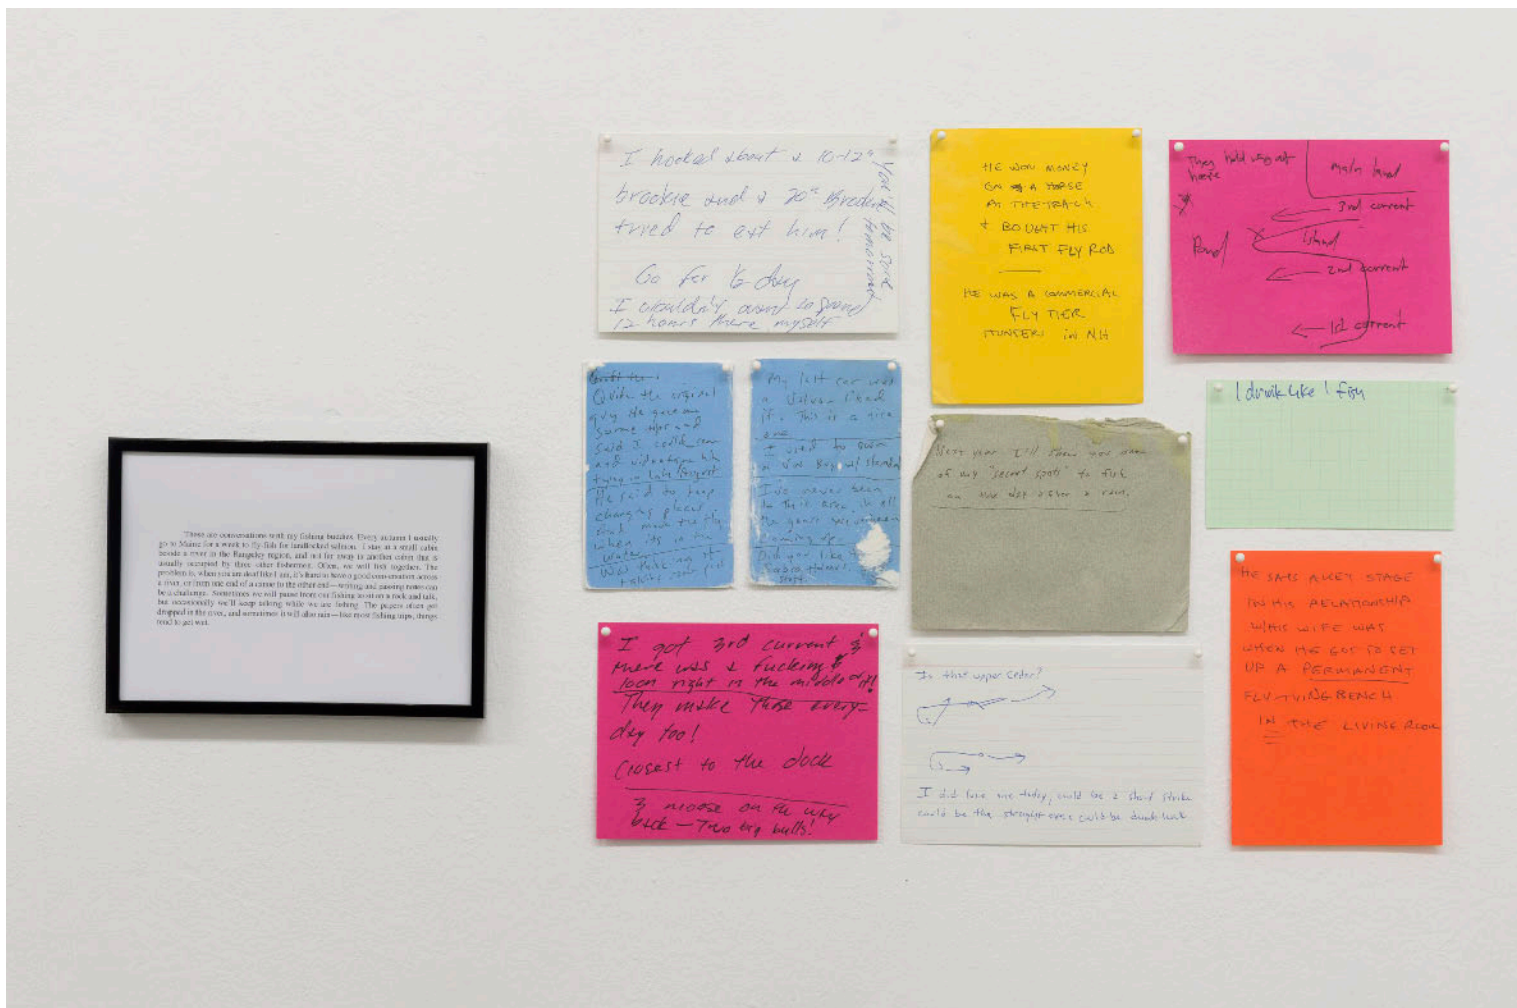 These are conversations with my fishing buddies. Every autumn I usually
go to Maine for a week to fly-fish for landlocked salmon. I stay at a small cabin
beside a river in the Rangeley region, and not far away is another cabin that is
usually occupied by three other fishermen. Often, we will fish together. The
problem is, when you are deaf like I am, it's hard to have a good conversation across
a river, or from one end of a canoe to the other end—writing and passing notes can
be a challenge. Sometimes we will pause from our fishing to sit on a rock and talk,
but occasionally we'll keep talking while we are fishing. The papers often get
dropped in the river, and sometimes it will also rain—like most fishing trips, things
tend to get wet.
I hooked about a 10-12"
brookie and a 20"
tried to eat him!
You'll be sore
tomorrow
Go for 1/2 day
I wouldn't want to spend
12 hours there myself
HE WON MONEY
ON A HORSE
AT THE TRACK
+ BOUGHT HIS
FIRST FLY ROD
HE WAS A COMMERCIAL
FLY TIER
IN NH
They hold right
here
main land
3rd current
Island
Pond
2nd current
1st current
Quite the
Quite the original
guy. He gave me
some tips and
said I could come
and videotape him
tying in late August
He said to keep
changing places
and move the fly
when its in the
water
Was thinking of
taking your
My last car was
a Volvo I liked
it. This is a nice
one
I used to own
a
I've never been
to this area in all
the years we've been
coming up.
Did you like the
Next year I'll show you one
of my "secret spots" to fish,
on the day after a rain.
I drink like 1 fish
I got 3rd current &
there was a fucking
loon right in the middle of it!
They make those every-
day too!
Closest to the dock
3 moose on the way
back — Two big bulls!
Is that upper
I did lose one today, could be a short strike
could be the straight could be dumb luck
HE SAYS A KEY STAGE
IN HIS RELATIONSHIP
W/HIS WIFE WAS
WHEN HE GOT TO SET
UP A PERMANENT
FLY-TYING BENCH
IN THE LIVING ROOM